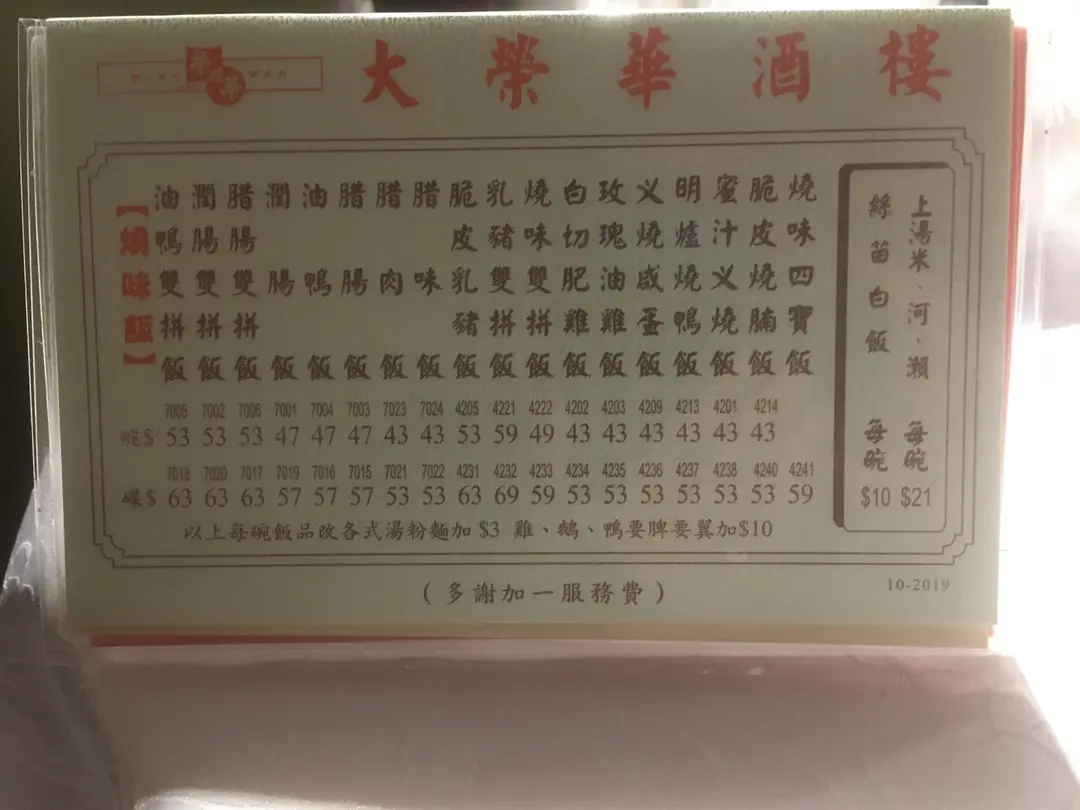 大榮華酒樓
【燒味飯】
油鴨雙拼飯
潤腸雙拼飯
腊腸雙拼飯
潤腸飯
油鴨飯
腊腸飯
腊肉飯
腊味飯
脆皮乳豬飯
乳豬雙拼飯
燒味雙拼飯
白切肥雞飯
玫瑰油雞飯
义燒咸蛋飯
明爐燒鴨飯
蜜汁义燒飯
脆皮燒腩飯
燒味四寶飯
7005 7002 7006 7001 7004 7003 7023 7024 4205 4221 4222 4202 4203 4209 4213 4201 4214
碗$ 53 53 53 47 47 47 43 43 53 59 49 43 43 43 43 43 43
7018 7020 7017 7019 7016 7015 7021 7022 4231 4232 4233 4234 4235 4236 4237 4238 4240 4241
碟$ 63 63 63 57 57 57 53 53 63 69 59 53 53 53 53 53 53 59
以上每碗飯品改各式湯粉麵加 $3 雞、鵝、鴨要脾要翼加$10
上湯米、河、瀨 每碗 $21
絲苗白飯 每碗 $10
(多謝加一服務費)
10-2019